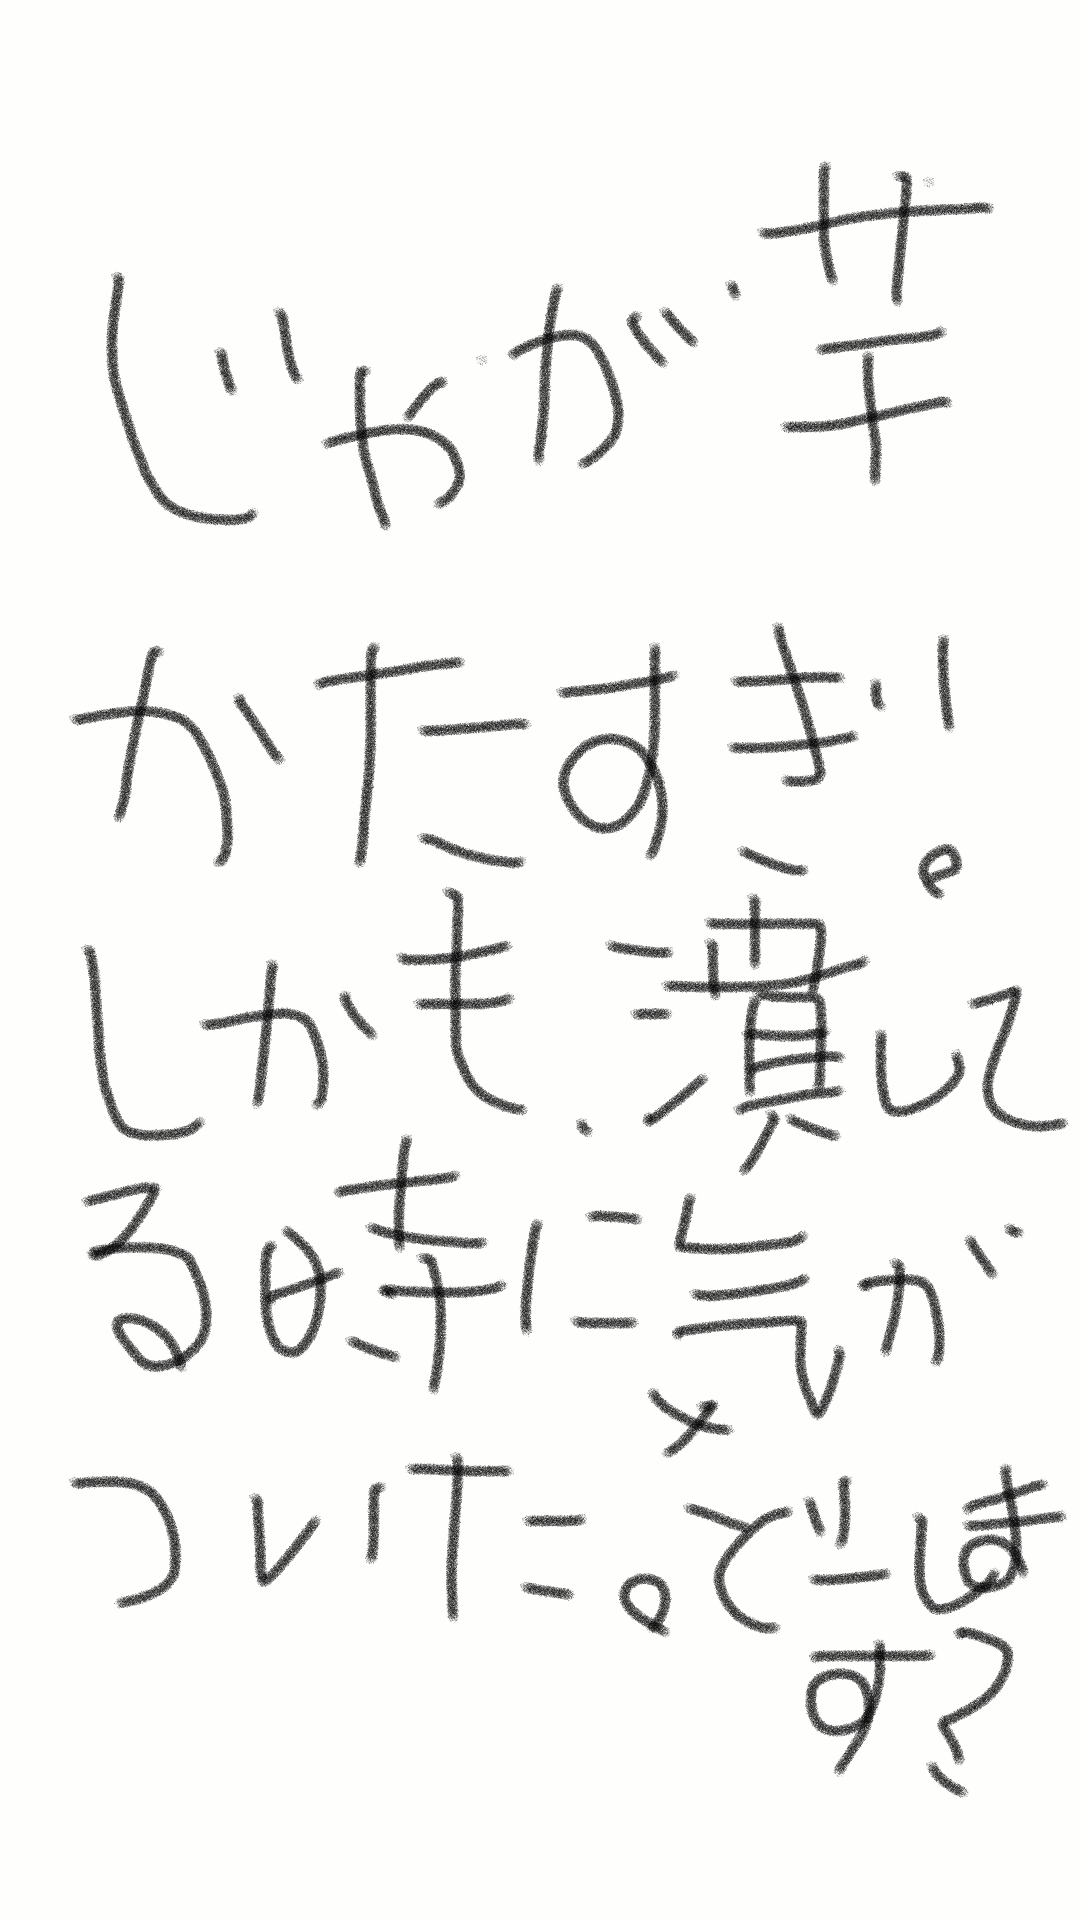 じゃが芋
かたすぎ。
しかも潰して
る時に気が
ついた。どしま
す?